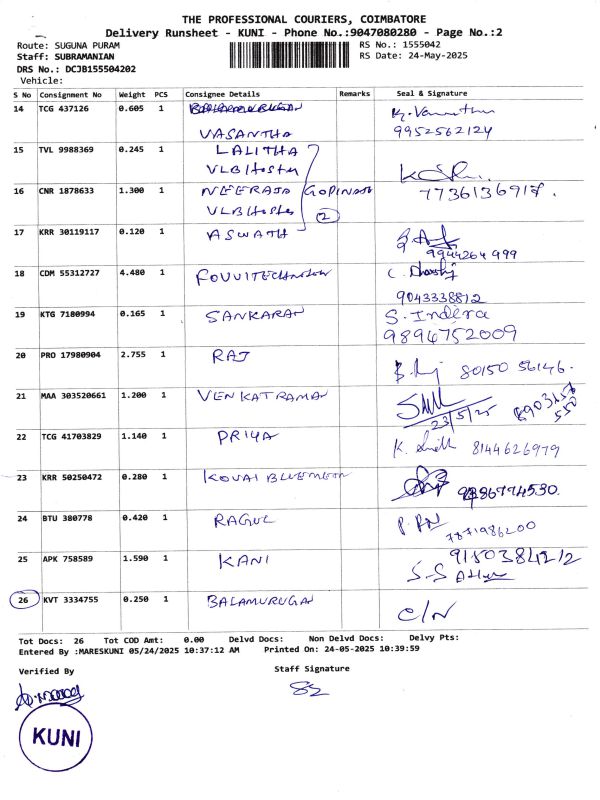 THE PROFESSIONAL COURIERS, COIMBATORE
Delivery Runsheet - KUNI - Phone No.:9047080280 - Page No.:2
Route: SUGUNA PURAM RS No.: 1555042
Staff: SUBRAMANIAN RS Date: 24-May-2025
DRS No.: DCJB155504202
Vehicle:
S No Consignment No Weight PCS Consignee Details Remarks Seal & Signature
14 TCG 437126 0.605 1
VASANTHA 9952562124
15 TVL 9988369 0.245 1 LALITHA
VLB Hostel
16 CNR 1878633 1.300 1 NEERAJA GOPINATH 7736136917.
VLB Hostel 2
17 KRR 30119117 0.120 1 ASWATH
9944264999
18 CDM 55312727 4.480 1
9043338812
19 KTG 7180994 0.165 1 SANKARAN S. Indira
9894752009
20 PRO 17980904 2.755 1 RAJ 80150 56146.
21 MAA 303520661 1.200 1 VENKATRAMAN
23/5/25
22 TCG 41703829 1.140 1 PRIYA 8144626979
23 KRR 50250472 0.280 1 KOVAI
24 BTU 380778 0.420 1 RAGUL
7871986200
25 APK 758589 1.590 1 KANI
26 KVT 3334755 0.250 1 BALAMURUGAN C/N
Tot Docs: 26 Tot COD Amt: 0.00 Delvd Docs: Non Delvd Docs: Delvy Pts:
Entered By :MARESKUNI 05/24/2025 10:37:12 AM Printed On: 24-05-2025 10:39:59
Verified By Staff Signature
KUNI